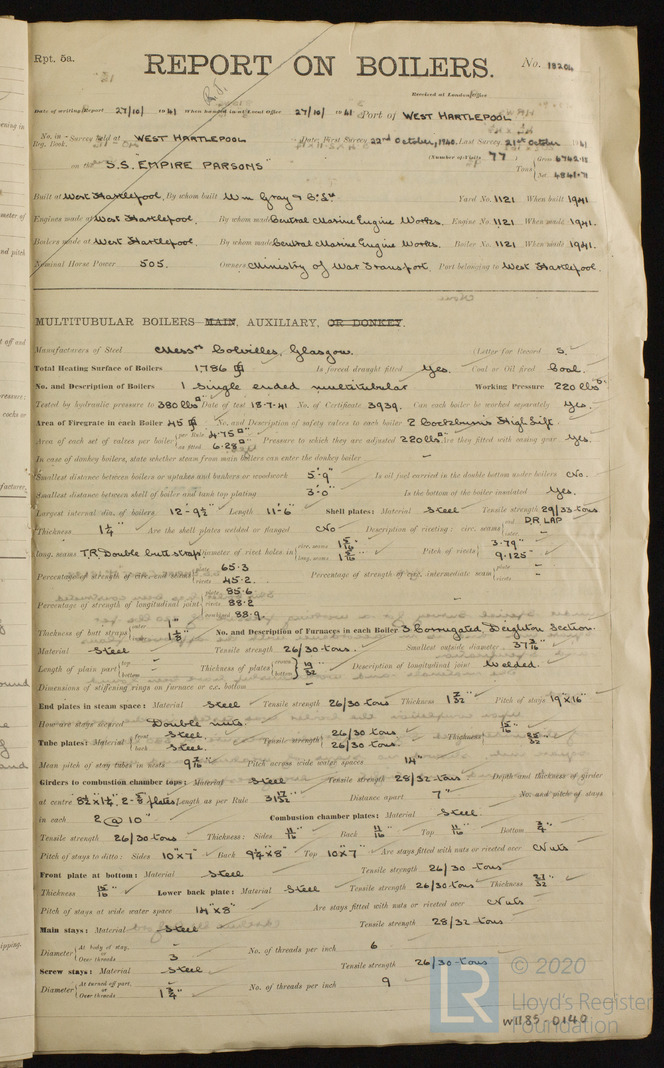 Rpt. 5a.
REPORT ON BOILERS.
No. 18204
Received at London Office
Date of writing Report 27/10/1941 When handed in at Local Office 27/10/1941 Port of WEST HARTLEPOOL
No. in Survey held at WEST HARTLEPOOL Date, First Survey 22nd October, 1940. Last Survey 21st October 1941
Reg. Book. (Number of Visits 77)
on the S.S. "EMPIRE PARSONS" Tons Gross 6742.18
Net 4861.71
Built at West Hartlepool. By whom built Wm Gray & Co. Ltd Yard No. 1121 When built 1941
Engines made at West Hartlepool. By whom made Central Marine Engine Works. Engine No. 1121 When made 1941.
Boilers made at West Hartlepool. By whom made Central Marine Engine Works. Boiler No. 1121 When made 1941.
Nominal Horse Power 505. Owners Ministry of War Transport. Port belonging to West Hartlepool.
MULTITUBULAR BOILERS MAIN, AUXILIARY, OR DONKEY.
Manufacturers of Steel Messrs Colvilles, Glasgow. (Letter for Record S.
Total Heating Surface of Boilers 1,786 Is forced draught fitted Yes. Coal or Oil fired Coal.
No. and Description of Boilers 1 Single ended multitubular Working Pressure 220 lbs
Tested by hydraulic pressure to 380 lbs Date of test 18.7.41 No. of Certificate 3939. Can each boiler be worked separately Yes.
Area of Firegrate in each Boiler 45 No. and Description of safety valves to each boiler 2 Cockburn's High Lift.
Area of each set of valves per boiler per Rule 4.75 Pressure to which they are adjusted 220 lbs Are they fitted with easing gear Yes.
as fitted 6.28
In case of donkey boilers, state whether steam from main boilers can enter the donkey boiler –
Smallest distance between boilers or uptakes and bunkers or woodwork 5'-9" Is oil fuel carried in the double bottom under boilers No.
Smallest distance between shell of boiler and tank top plating 3'-0" Is the bottom of the boiler insulated Yes.
Largest internal dia. of boilers 12'-9½" Length 11'-6" Shell plates: Material Steel Tensile strength 29/33 tons
Thickness 1¼" Are the shell plates welded or flanged No Description of riveting: circ. seams end D.R. LAP
inter. –
long. seams T.R. Double butt strap Diameter of rivet holes in circ. seams 1 5/16" Pitch of rivets 3.79"
long. seams 1 5/16" 9.125"
Percentage of strength of circ. end seams plate 65.3 Percentage of strength of circ. intermediate seam plate –
rivets 45.2. rivets –
Percentage of strength of longitudinal joint plate 85.6
rivets 88.2
combined 88.9.
Thickness of butt straps outer 1" No. and Description of Furnaces in each Boiler 3 Corrugated Deighton Section.
inner 1⅛"
Material Steel Tensile strength 26/30 tons. Smallest outside diameter 37 3/16"
Length of plain part top – Thickness of plates crown 19/32 Description of longitudinal joint Welded.
bottom – bottom
Dimensions of stiffening rings on furnace or c.c. bottom –
End plates in steam space: Material Steel Tensile strength 26/30 tons Thickness 1 7/32" Pitch of stays 19"x16"
How are stays secured Double nuts.
Tube plates: Material front Steel. Tensile strength 26/30 tons. Thickness 15/16"
back Steel. 26/30 tons. 25/32"
Mean pitch of stay tubes in nests 9 7/16" Pitch across wide water spaces 14"
Girders to combustion chamber tops: Material Steel Tensile strength 28/32 tons. Depth and thickness of girder
at centre 8½"x1¼". 2-⅝" plates Length as per Rule 31 17/32" Distance apart 7" No. and pitch of stays
in each 2 @ 10" Combustion chamber plates: Material Steel.
Tensile strength 26/30 tons Thickness: Sides 11/16" Back 11/16" Top 11/16" Bottom ¾"
Pitch of stays to ditto: Sides 10"x7" Back 9¼"x8" Top 10"x7" Are stays fitted with nuts or riveted over Nuts
Front plate at bottom: Material Steel Tensile strength 26/30 tons
Thickness 15/16" Lower back plate: Material Steel Tensile strength 26/30 tons Thickness 27/32"
Pitch of stays at wide water space 14"x8" Are stays fitted with nuts or riveted over Nuts
Main stays: Material Steel Tensile strength 28/32 tons
Diameter At body of stay, –
or
Over threads 3 No. of threads per inch 6
Screw stays: Material Steel Tensile strength 26/30 tons
Diameter At turned off part, –
or
Over threads 1¾" No. of threads per inch 9
© 2020
LR
Lloyd's Register
Foundation
W1185-0140